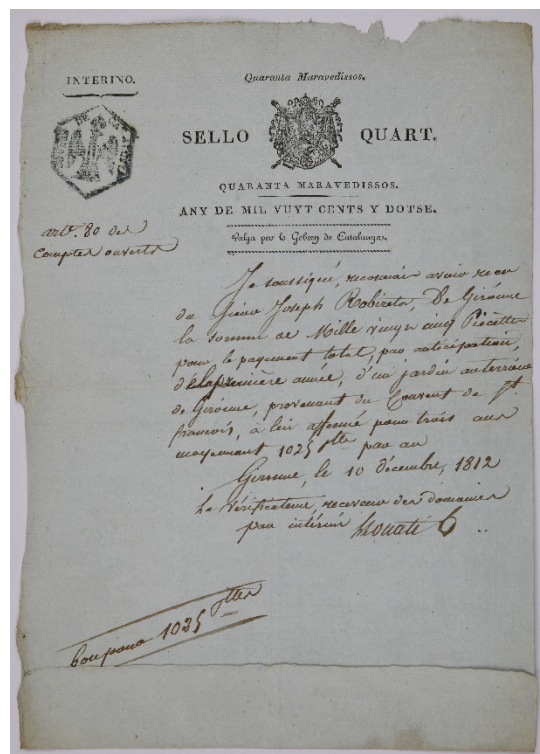 INTERINO.
Quaranta Maravedissos.
SELLO QUART.
QUARANTA MARAVEDISSOS.
ANY DE MIL VUYT CENTS Y DOTSE.
Valga per lo Gobern de Catalunya.
artᵉ. 80 des
Comptes ouverts
Je soussigné, reconnais avoir reçu
du Sieur Joseph Robireta, De Gironne
la somme de Mille vingt cinq Piecettes
pour le payement total, par anticipation,
de la première année, d'un jardin au terrein
de Gironne, provenant du Couvent de Sᵗ.
françois, à lui affermé pour trois ans
moyennant 1025 ₶ par an
Gironne, le 10 décembre, 1812
Le Vérificateur, receveur des domaines
par intérim
Bon pour 1025